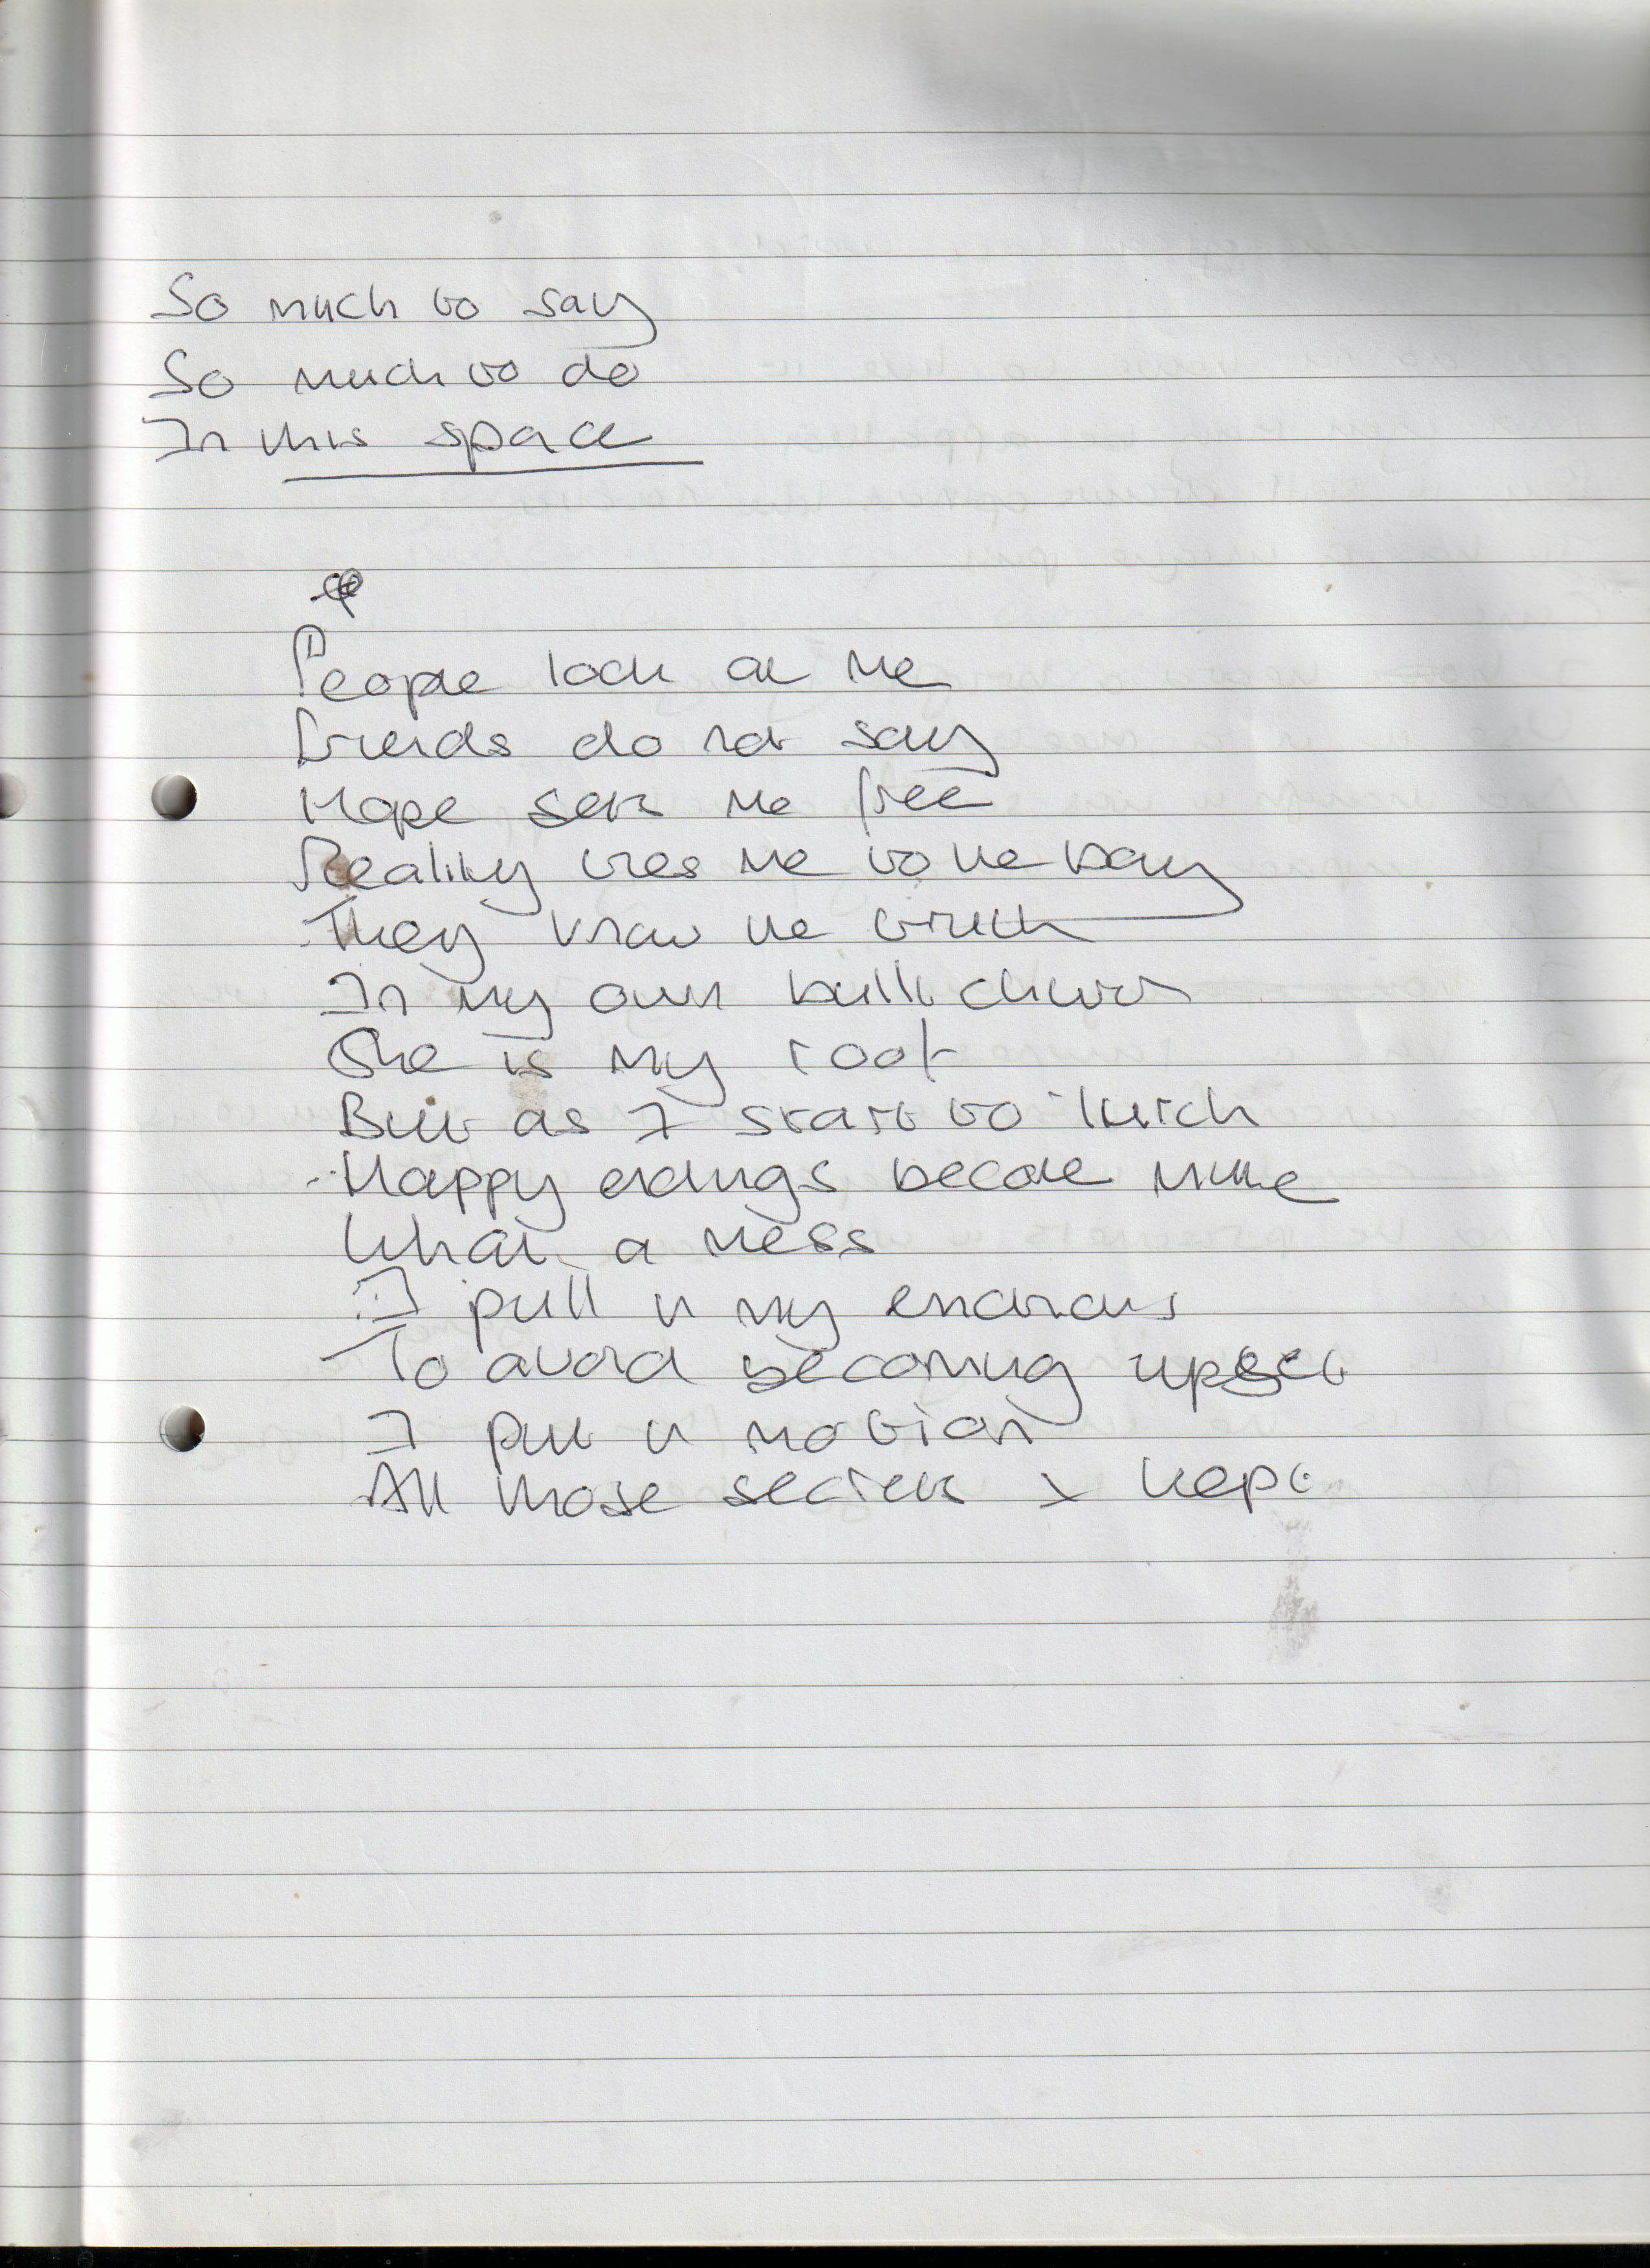 So much to say
So much to do
In this space
People look at me
Friends do not say
Hope sets me free
Reality ties me to the bay
They know the truth
In my own built church
She is my root
But as I start to lurch
Happy endings become mine
What a mess
I pull in my emotions
To avoid becoming upset
I put in motion
All those secrets I kept